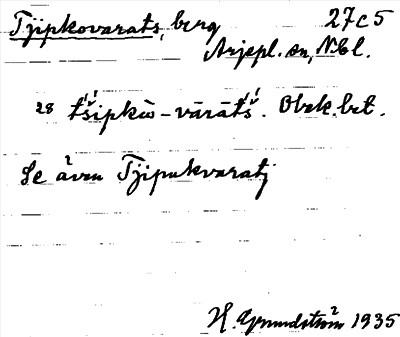 Tjipkovarats, berg 27c5
Arjepl. sn, Nbl.
28 tšipkò-vārātš. Obek. bet.
Se även Tjipukvaratj
H. Grundström 1935